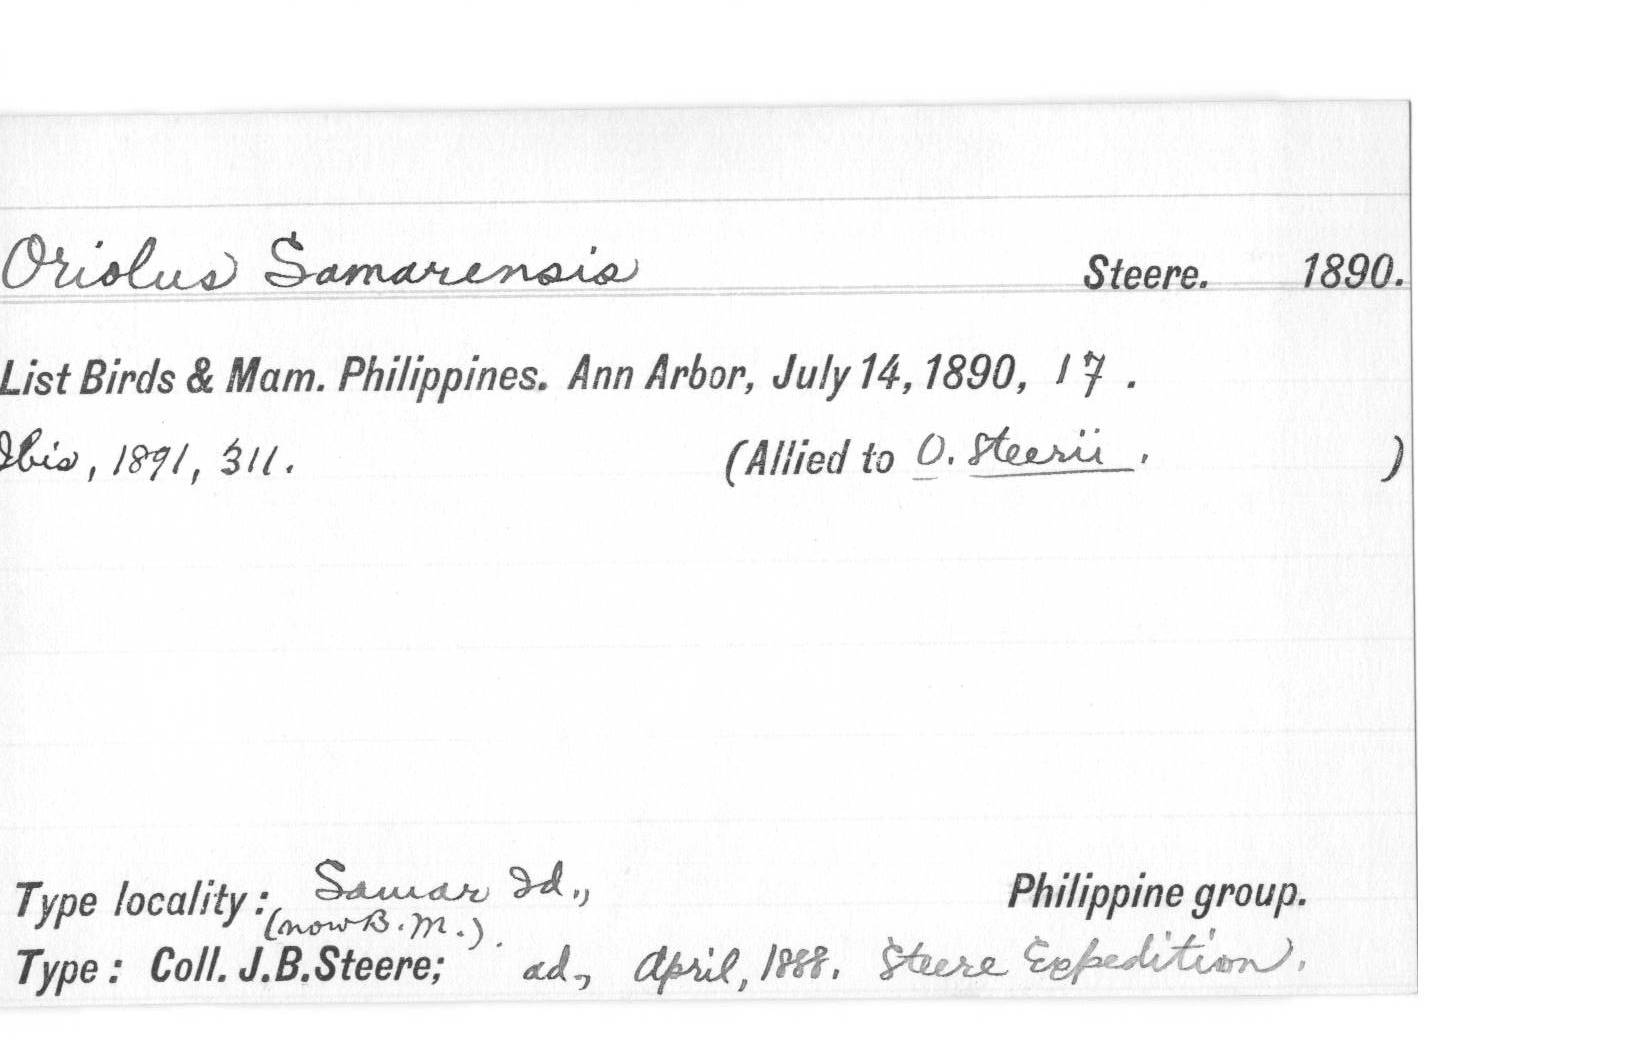 Oriolus Samarensis Steere. 1890.
List Birds & Mam. Philippines. Ann Arbor, July 14, 1890, 17.
Ibis, 1891, 311. (Allied to O. Steerii. )
Type locality: Samar Id., Philippine group.
(now B.M.).
Type: Coll. J.B.Steere; ad., April, 1888. Steere Expedition.